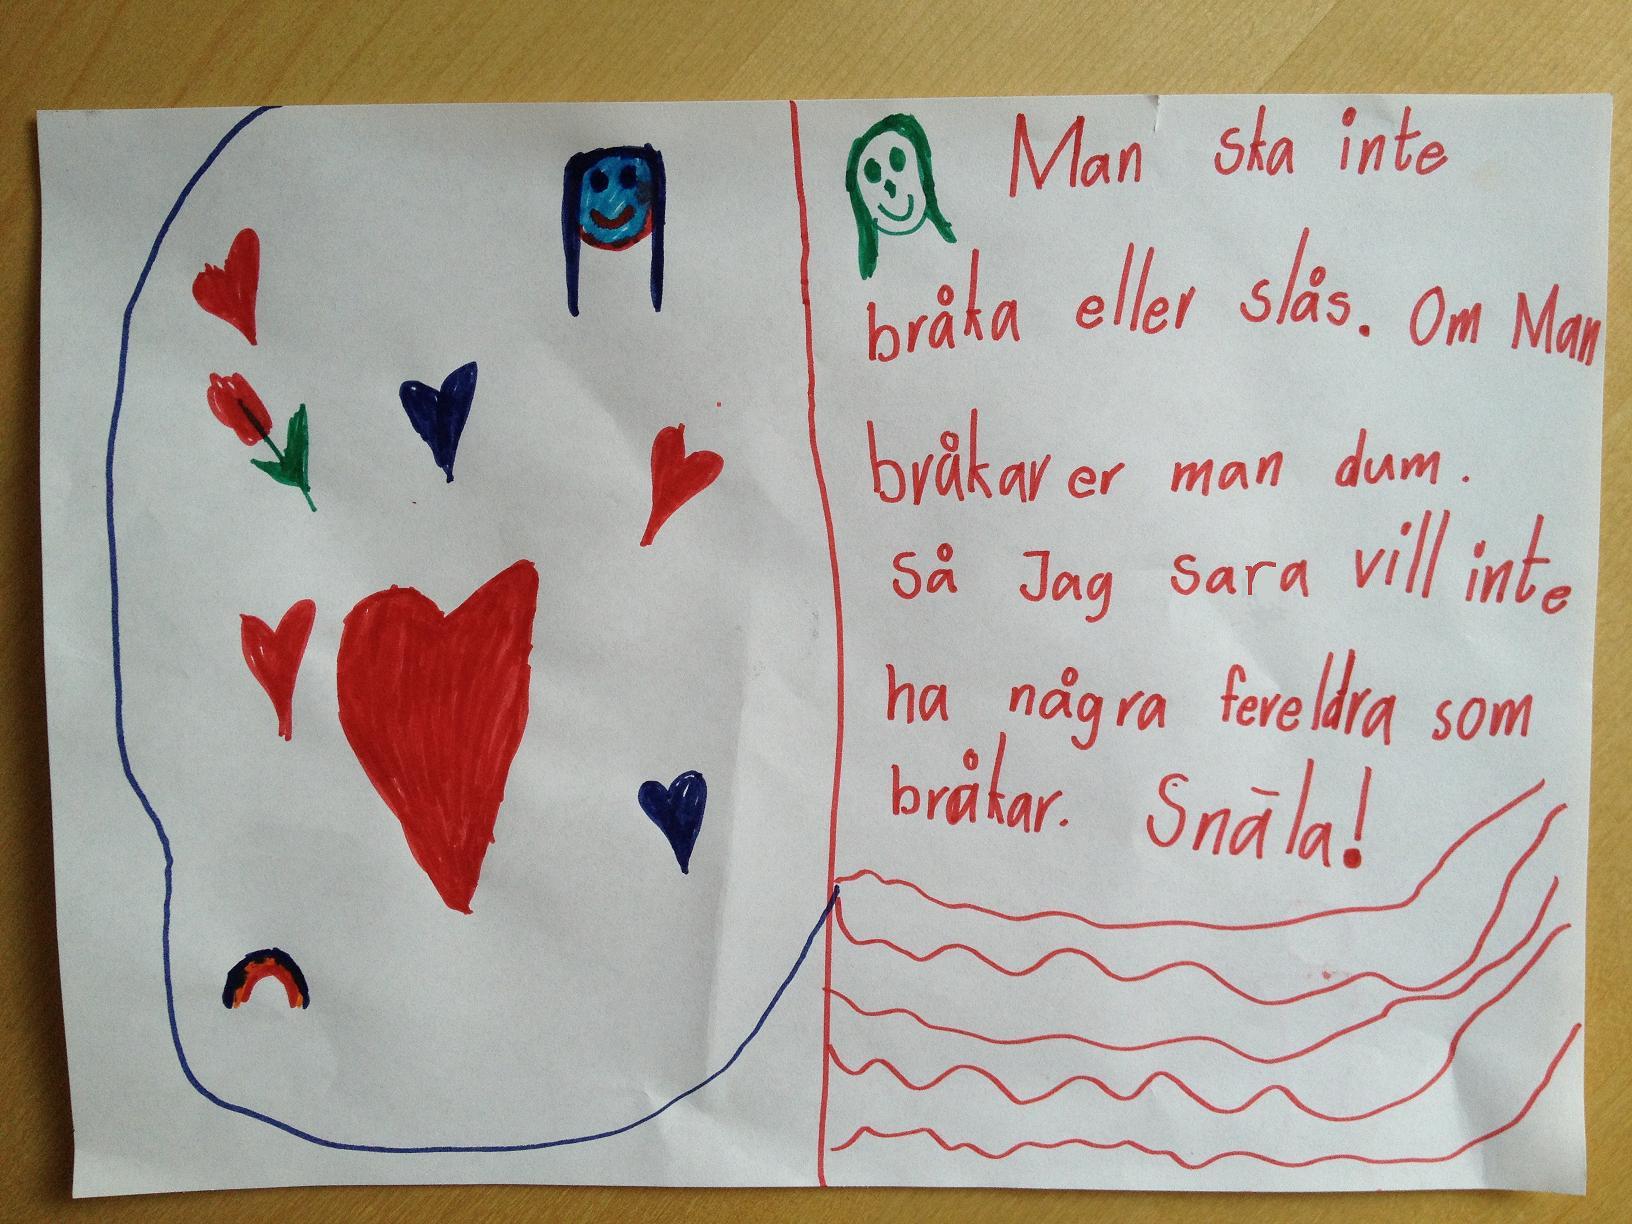 Man ska inte
bråka eller slås. Om Man
bråkar er man dum.
så Jag sara vill inte
ha några fereldra som
bråkar. Snäla!